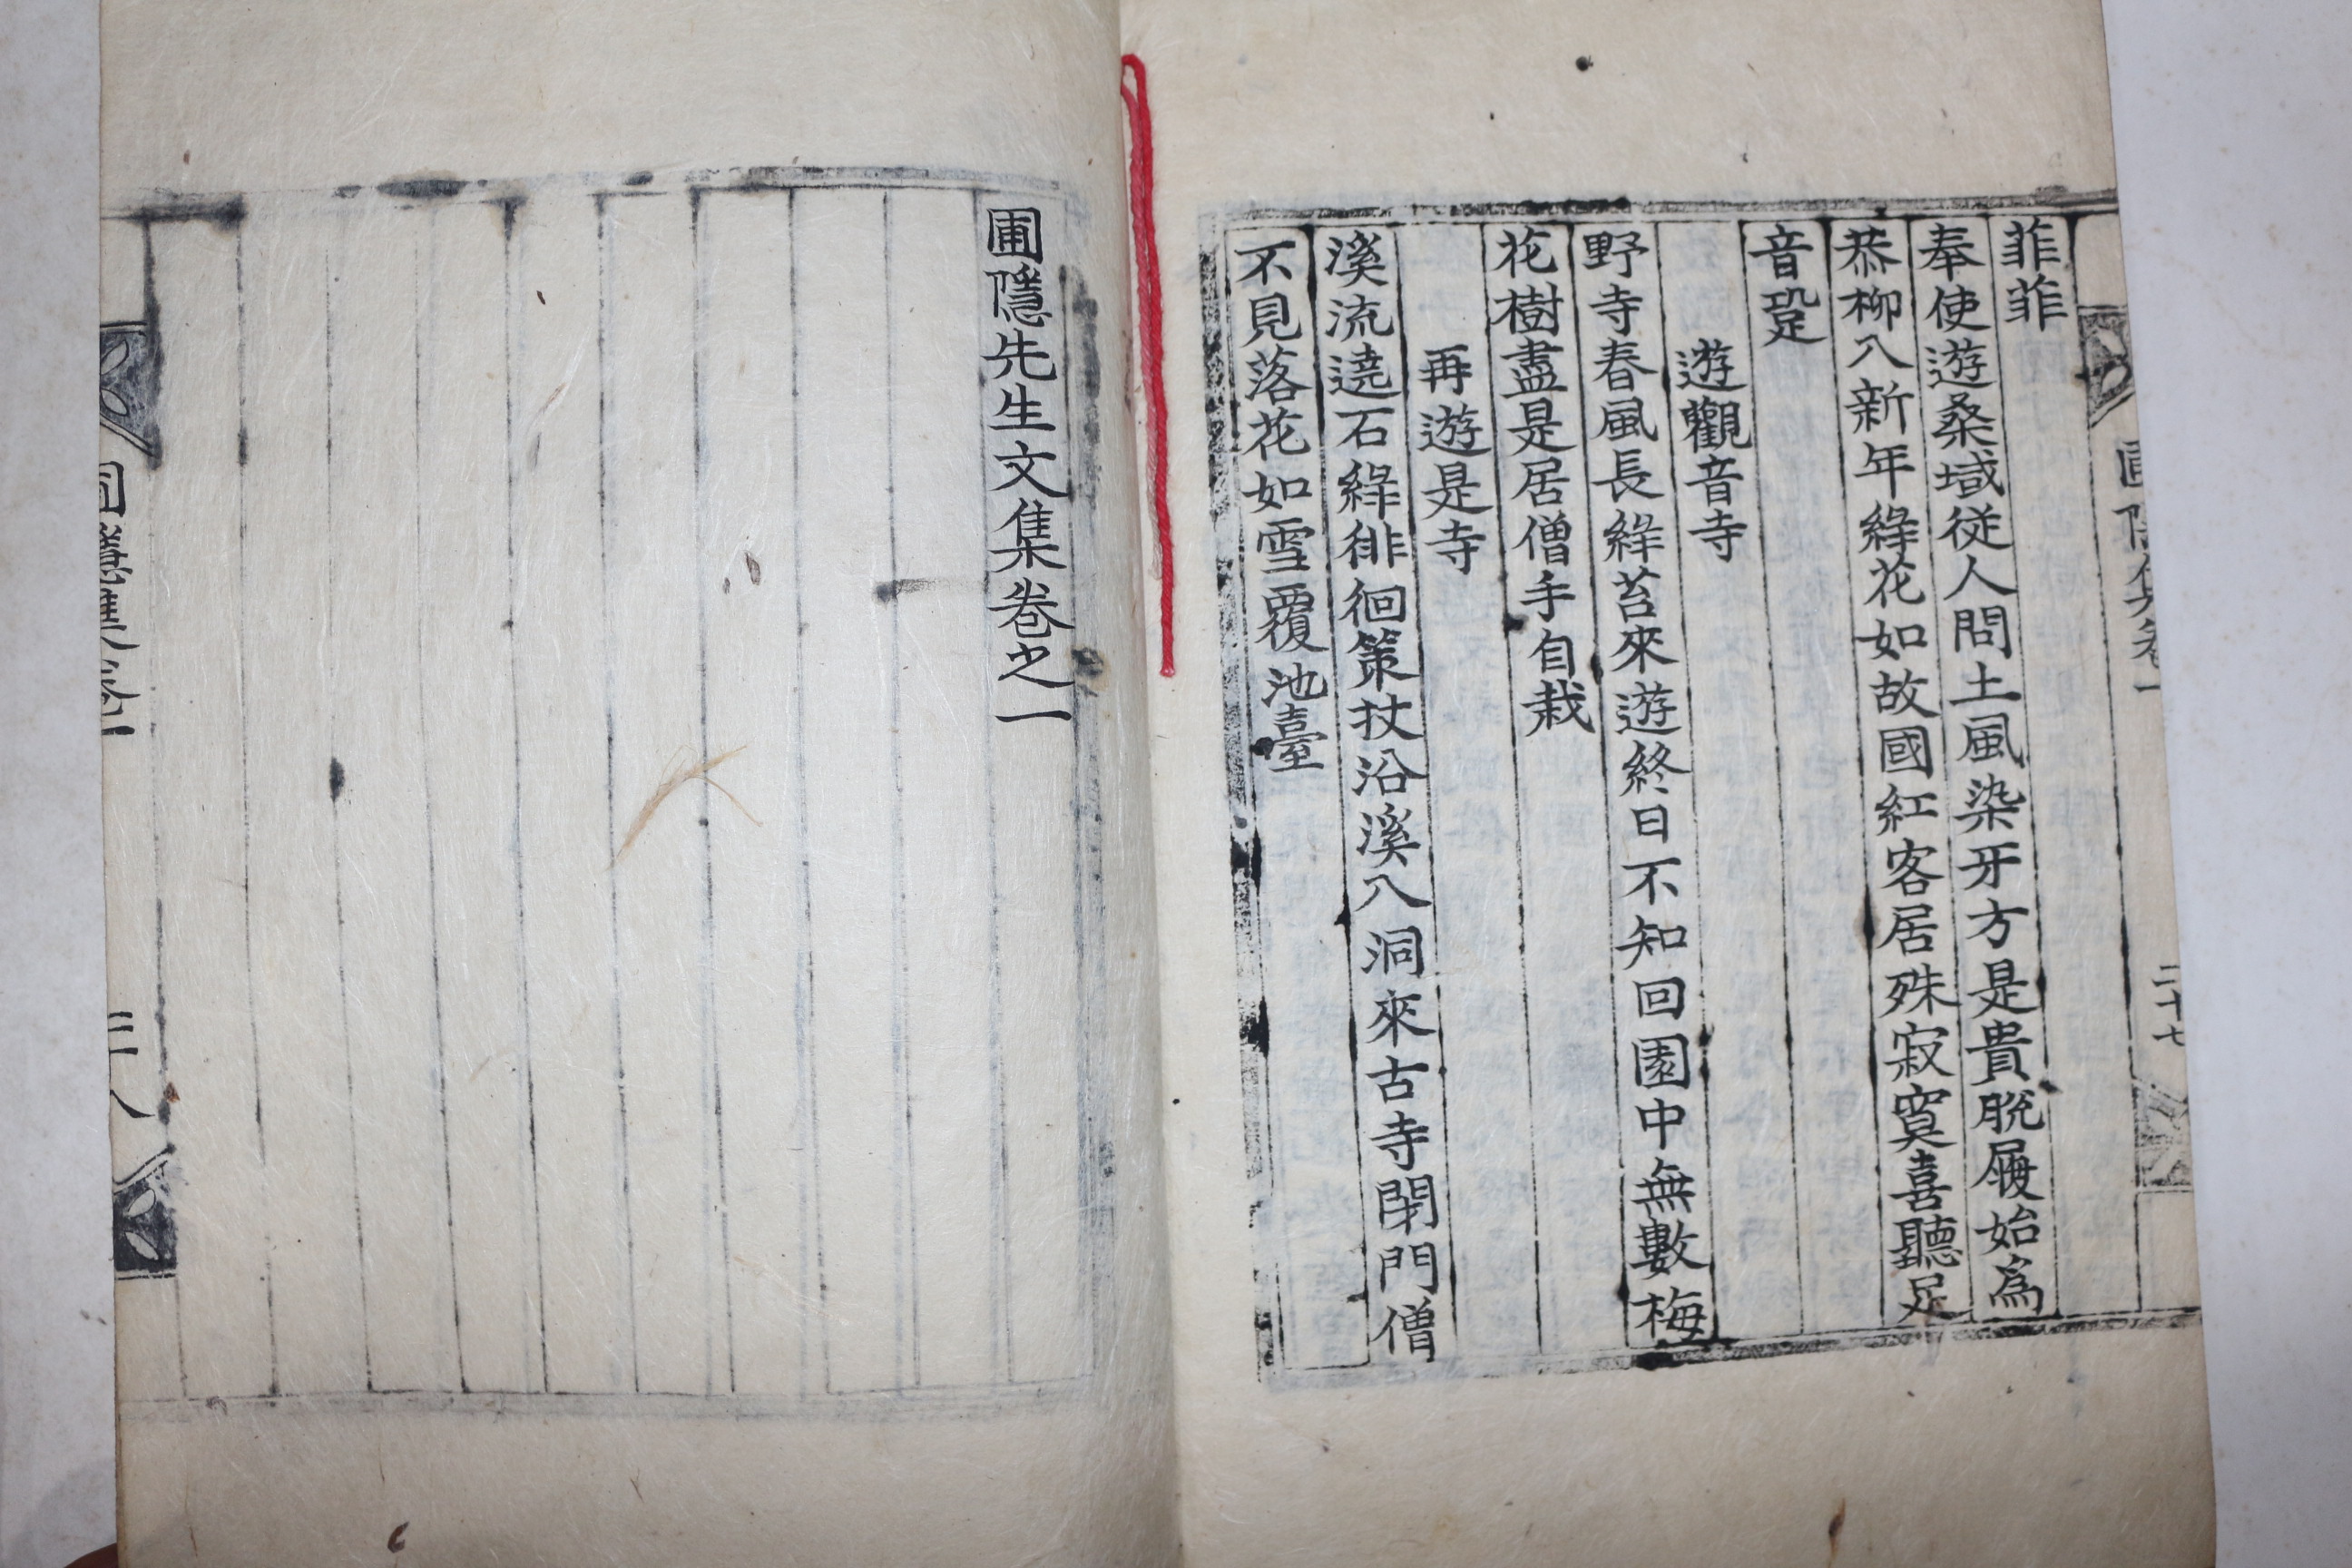 菲菲
奉使遊桑域從人問土風染牙方是貴脫屨始爲
恭柳入新年綠花如故國紅客居殊寂寞喜聽足
音跫
遊觀音寺
野寺春風長綠苔來遊終日不知回園中無數梅
花樹盡是居僧手自栽
再遊是寺
溪流遶石綠徘徊策杖沿溪入洞來古寺閉門僧
不見落花如雪覆池臺
圃隱集卷一
二十七
圃隱先生文集卷之一
圃隱集卷一
二十八